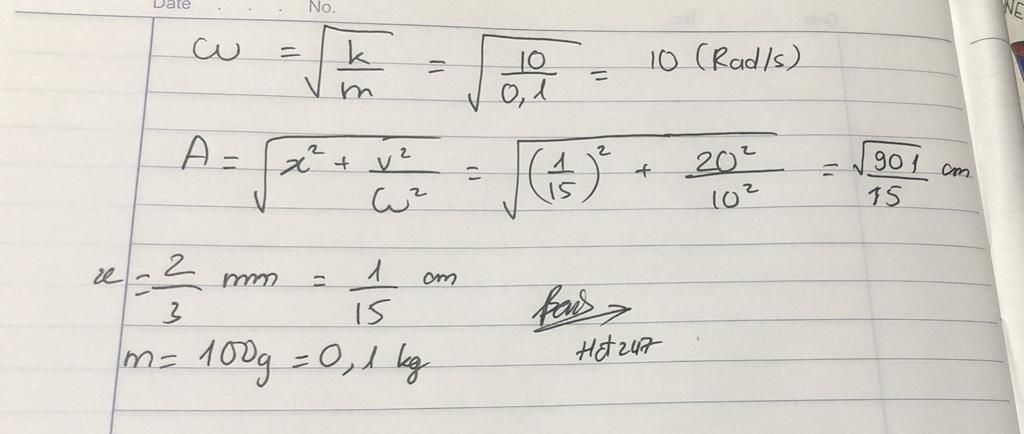 Date . . . No.
ω = √(k/m) = √(10/0,1) = 10 (Rad/s)
A = √(x² + v²/ω²) = √((1/15)² + 20²/10²) = √901/15 cm
x = 2/3 mm = 1/15 cm
m = 100g = 0,1 kg